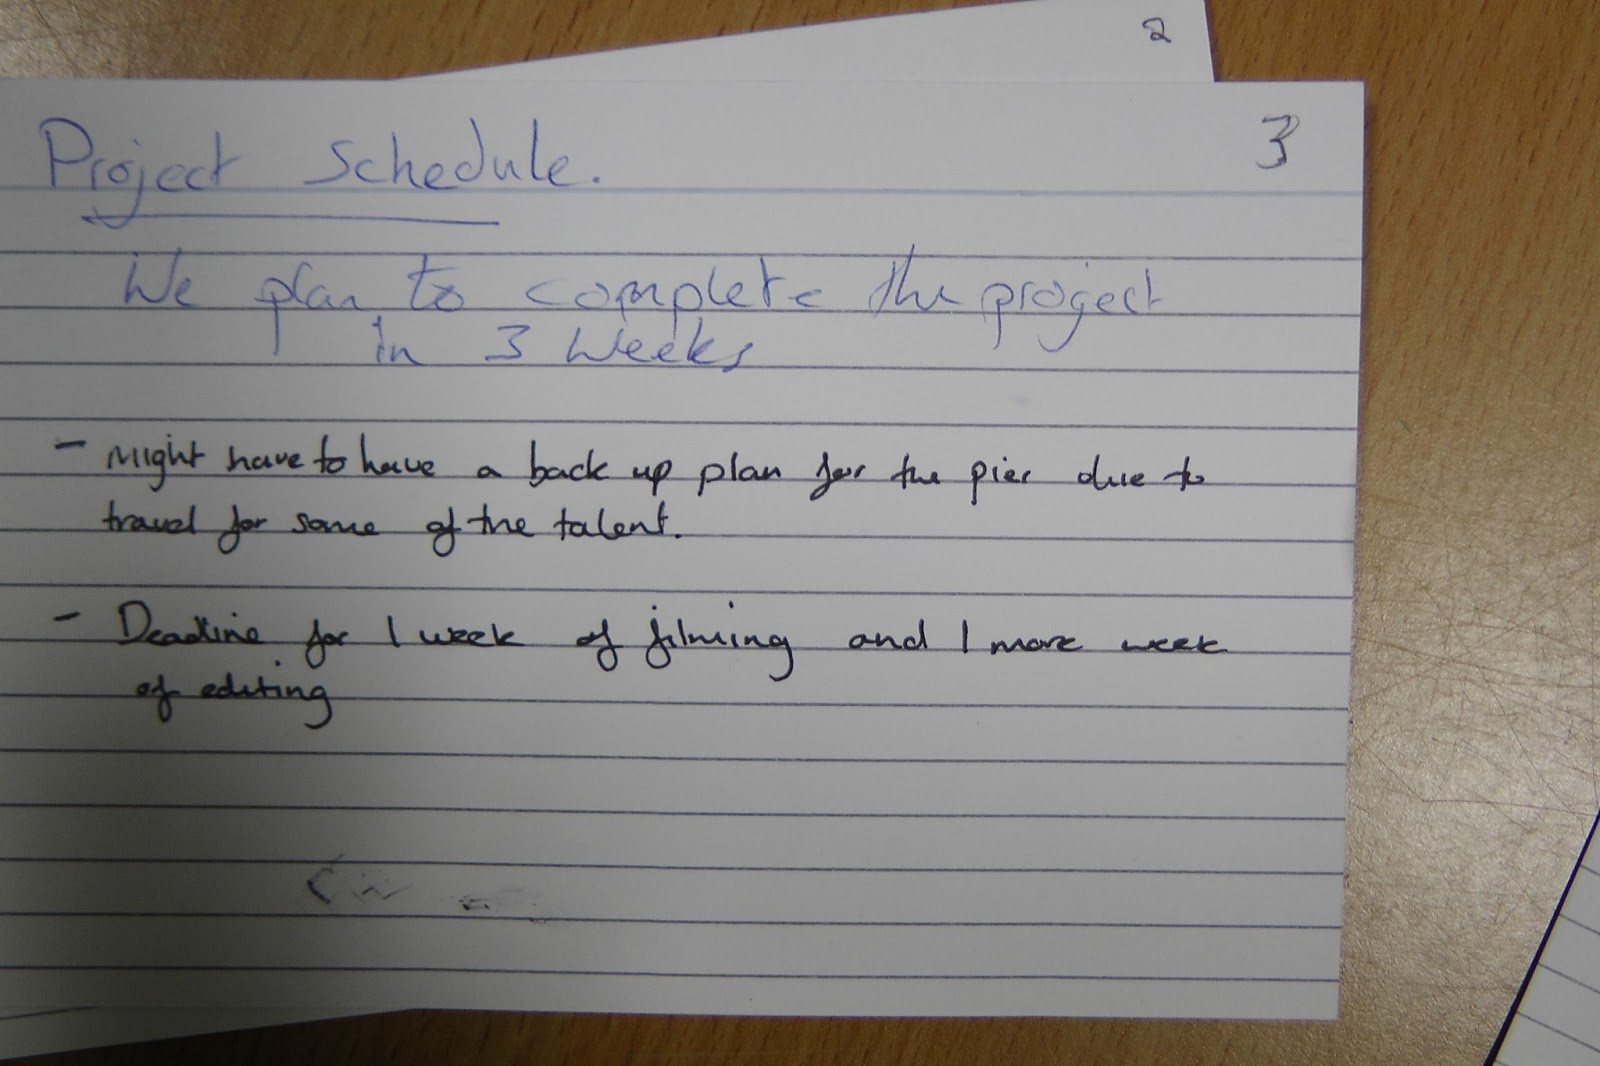 2
3
Project Schedule.
We plan to complete the project
In 3 weeks
- Might have to have a back up plan for the pier due to
travel for some of the talent.
- Deadline for 1 week of filming and 1 more week
of editing